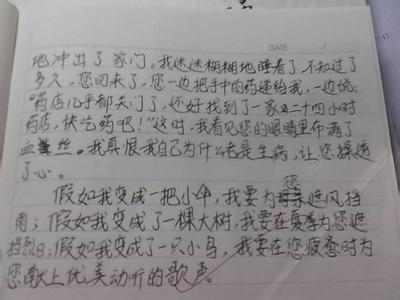 DATE
地冲出了家门。我迷迷糊糊地睡着了，不知过了
多久，您回来了，您一边把手中的药递给我，一边说：
“药店几乎都关门了，还好找到了一家二十四小时
药店，快吃药吧！”这时，我看见您的眼睛里布满了
血丝。我真恨我自己为什么老是生病，让您操透
了心。
假如我变成一把小伞，我要为您遮风挡
雨；假如我变成了一棵大树，我要在夏季为您遮
挡烈日；假如我变成了一只小鸟，我要在您疲惫时为
您献上优美动听的歌声。